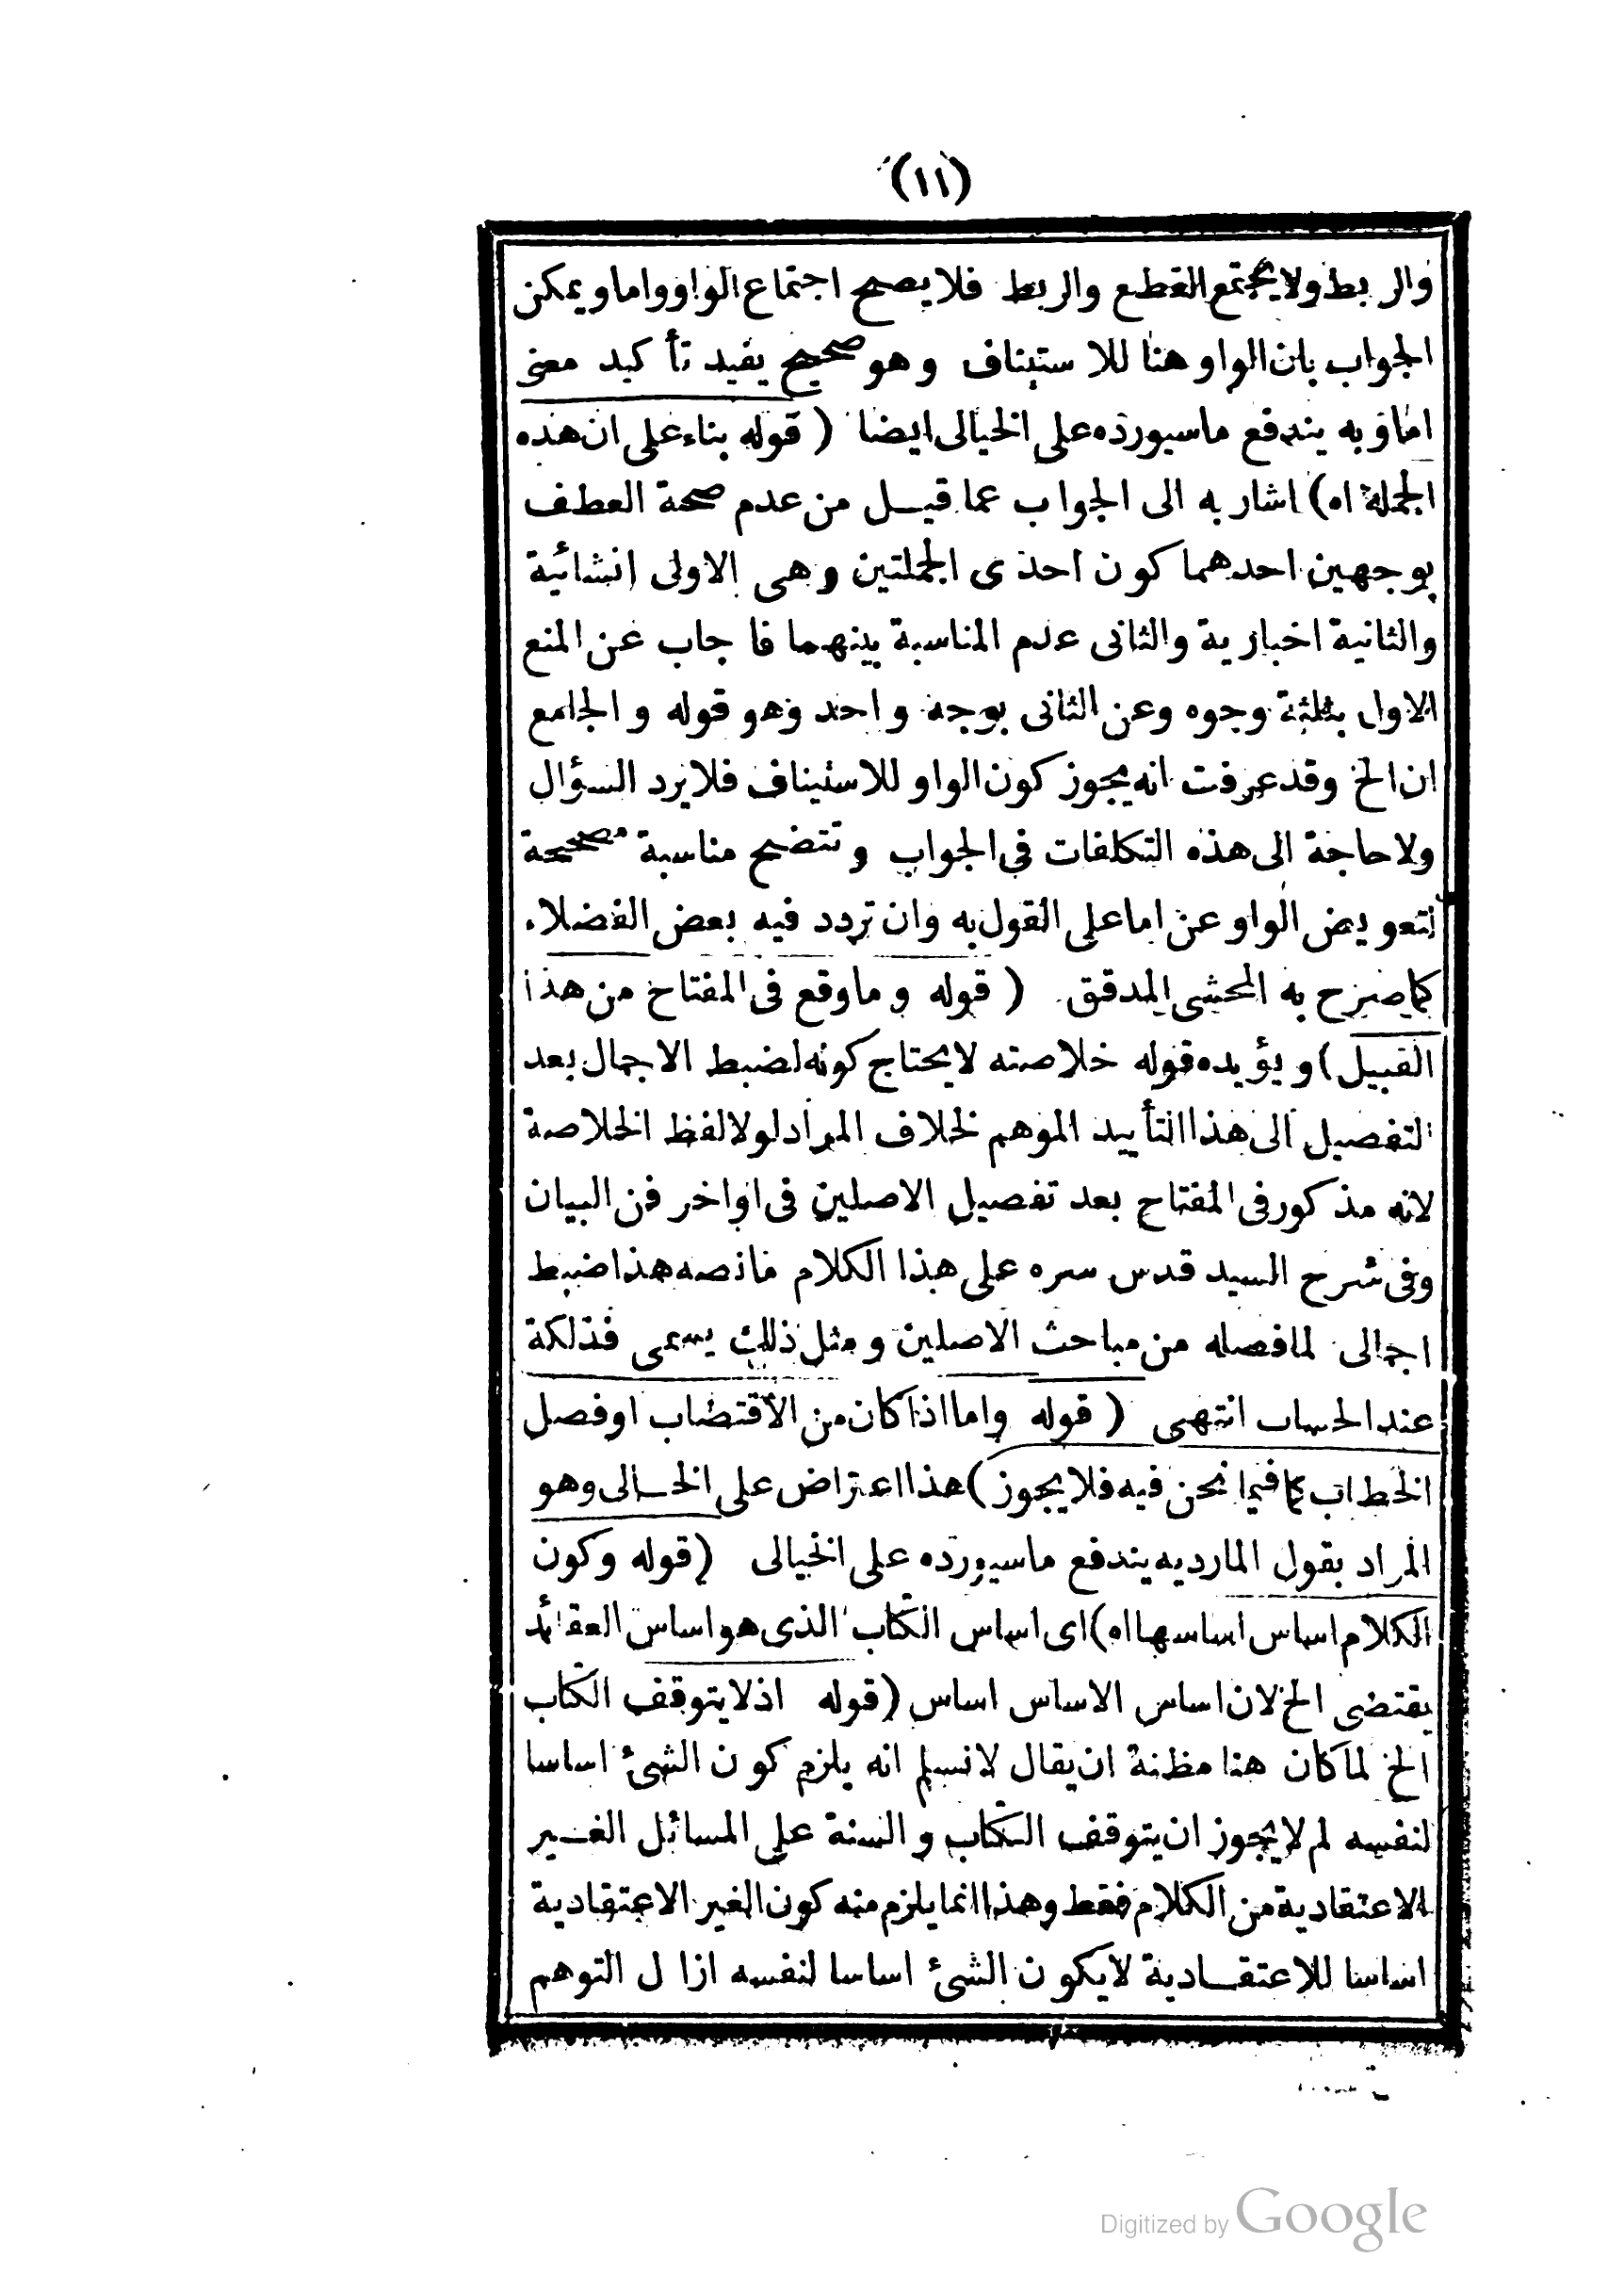 (١١)
والربط ولا يجتمع القطع والربط فلا يصح اجتماع الواو واما ويمكن
الجواب بان الواو هنا للاستيناف وهو صحيح يفيد تأكيد معنى
اما وبه يندفع ما سيورده على الخيالى ايضا ( قوله بناء على ان هذه
الجملة اه) اشار به الى الجواب عما قيل من عدم صحة العطف
بوجهين احدهما كون احدى الجملتين وهى الاولى انشائية
والثانية اخبارية والثانى عدم المناسبة بينهما فاجاب عن المنع
الاول بثلثة وجوه وعن الثانى بوجه واحد وهو قوله والجامع
ان الخ وقد عرفت انه يجوز كون الواو للاستيناف فلا يرد السؤال
ولا حاجة الى هذه التكلفات فى الجواب وتتضح مناسبة مصححة
لتعويض الواو عن اما على القول به وان تردد فيه بعض الفضلاء
كما صرح به المحشى المدقق ( قوله وما وقع فى المفتاح من هذا
القبيل) ويؤيده قوله خلاصته لا يحتاج كونه لضبط الاجمال بعد
التفصيل الى هذا التأييد الموهم لخلاف المراد لولا لفظ الخلاصة
لانه مذكور فى المفتاح بعد تفصيل الاصلين فى اواخر فن البيان
وفى شرح السيد قدس سره على هذا الكلام ما نصه هذا ضبط
اجمالى لما فصله من مباحث الاصلين ومثل ذلك يسمى فذلكة
عند الحساب انتهى ( قوله واما اذا كان من الاقتضاب او فصل
الخطاب كما فيما نحن فيه فلا يجوز) هذا اعتراض على الخيالى وهو
المراد بقول المار وبه يندفع ما سيورده على الخيالى (قوله وكون
الكلام اساس اساسها اه) اى اساس الكتاب الذى هو اساس العقائد
يقتضى الخ لان اساس الاساس اساس (قوله اذ لا يتوقف الكتاب
الخ لما كان هنا مظنة ان يقال لا نسلم انه يلزم كون الشئ اساسا
لنفسه لم لا يجوز ان يتوقف الكتاب والسنة على المسائل الغير
الاعتقادية من الكلام فقط وهذا انما يلزم منه كون الغير الاعتقادية
اساسا للاعتقادية لا يكون الشئ اساسا لنفسه ازال التوهم
Digitized by Google